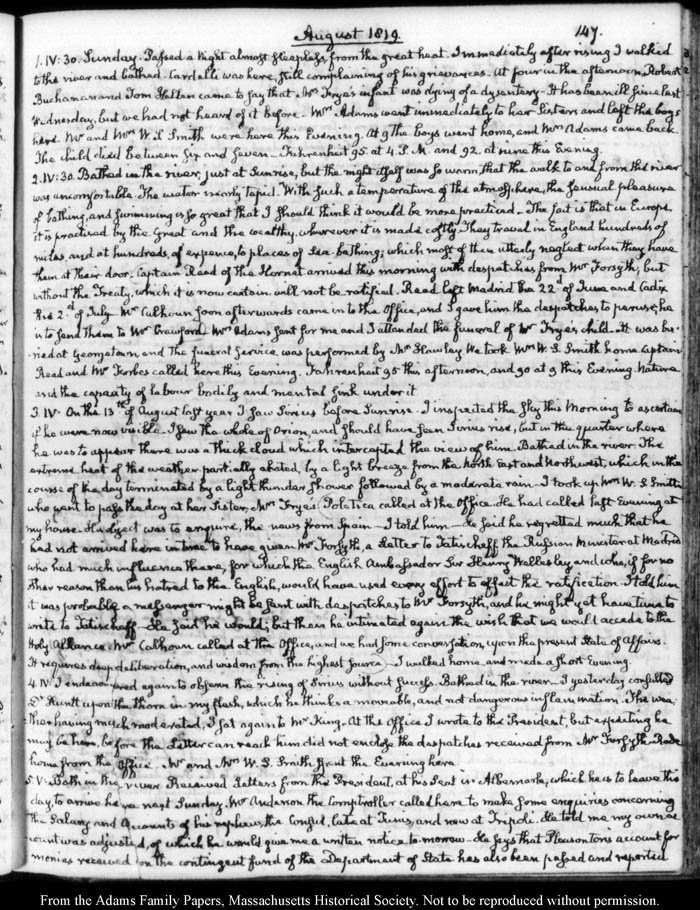 August 1819.
147.
1. IV:30. Sunday. Passed a Night almost sleepless, from the great heat. Immediately after rising I walked
to the river and bathed. Cardelli was here, still complaining of his grievances. At four in the afternoon, Robert
Buchanan and Tom Hellen came to say that Mrs Frye's infant was dying of a dysentery. It has been ill since last
Wednesday, but we had not heard of it before. Mrs Adams went immediately to her Sisters and left the boys
here. Mr and Mrs W. S. Smith were here this Evening. At 9 the boys went home, and Mrs Adams came back.
The child died between six and seven. Fahrenheit 95 at 4 P.M. and 92. at nine this Evening.
2. IV:30. Bathed in the river, just at Sunrise, but the night itself was so warm, that the walk to and from the river
was uncomfortable. The water nearly tepid. With such a temperature of the atmosphere, the sensual pleasure
of bathing, and swimming is so great that I should think it would be more practiced. The fact is that in Europe,
it is practiced by the Great and the wealthy, wherever it is made costly. They travel in England hundreds of
miles, and at hundreds, of expence, to places of Sea-bathing; which most of them utterly neglect when they have
them at their door. Captain Read of the Hornet arrived this morning with despatches from Mr Forsyth, but
without the Treaty, which it is now certain will not be ratified. Read left Madrid the 22d of June and Cadiz
the 2d of July. Mr Calhoun soon afterwards came in to the Office, and I gave him the despatches to peruse; he
is to send them to Mr Crawford. Mrs Adams sent for me and I attended the funeral of Mr Frye's child. It was bu-
ried at Georgetown, and the funeral service was performed by Mr Hawley. We took Mrs W. S. Smith home. Captain
Read and Mr Forbes called here this Evening. Fahrenheit 95 this afternoon, and 90 at 9 this Evening. Nature
and the capacity of labour bodily and mental sink under it.
3. IV. On the 13th of August last year I saw Sirius before Sunrise. I inspected the sky this Morning to ascertain
if he were now visible. I saw the whole of Orion, and should have seen Sirius rise, but in the quarter where
he was to appear there was a thick cloud which intercepted the view of him. Bathed in the river. The
extreme heat of the weather partially abated, by a light breeze from the North East and Northwest, which in the
course of the day terminated by a light thunder shower followed by a moderate rain. I took up Mrs W. S. Smith
who went to pass the day at her Sister, Mrs Frye's. Poletica called at the Office. He had called last Evening at
my house. His object was to enquire, the news from Spain. I told him. He said he regretted much that he
had not arrived here in time to have given Mr Forsyth, a Letter to Tatischeff the Russian Minister at Madrid
who had much influence there, for which the English Ambassador Sir Henry Wellesley and who, if for no
other reason than his hatred to the English, would have used every effort to effect the ratification. I told him
it was probable a messenger might be sent with despatches to Mr Forsyth, and he might yet have time to
write to Tatischeff. He said he would; but then he intimated again the wish that we would accede to the
Holy Alliance. Mr Calhoun called at the Office, and we had some conversation, upon the present state of affairs.
It requires deep deliberation, and wisdom from the highest source. I walked home, and made a short Evening.
4. IV. I endeavoured again to observe the rising of Sirius without success. Bathed in the river. I yesterday consulted
Dr Huntt upon the thorn in my flesh, which he thinks a moveable, and not dangerous inflammation. The wea-
ther having much moderated, I sat again to Mr King. At the Office I wrote to the President, but expecting he
may be here, before the Letter can reach him did not enclose the despatches received from Mr Forsyth. Rode
home from the Office. Mr and Mrs W. S. Smith spent the Evening here.
5. V. Bath in the river. Received Letters from the President, at his Seat in Albemarle, which he is to leave this
day, to arrive here next Sunday. Mr Anderson the Comptroller called here to make some enquiries concerning
the Salary and Accounts of his nephew, the Consul, late at Tunis, and now at Tripoli. He told me my own ac-
count was adjusted, of which he would give me a written notice to-morrow. He says that Pleasonton's account for
monies received on the contingent fund of the Department of State has also been passed and reported
From the Adams Family Papers, Massachusetts Historical Society. Not to be reproduced without permission.